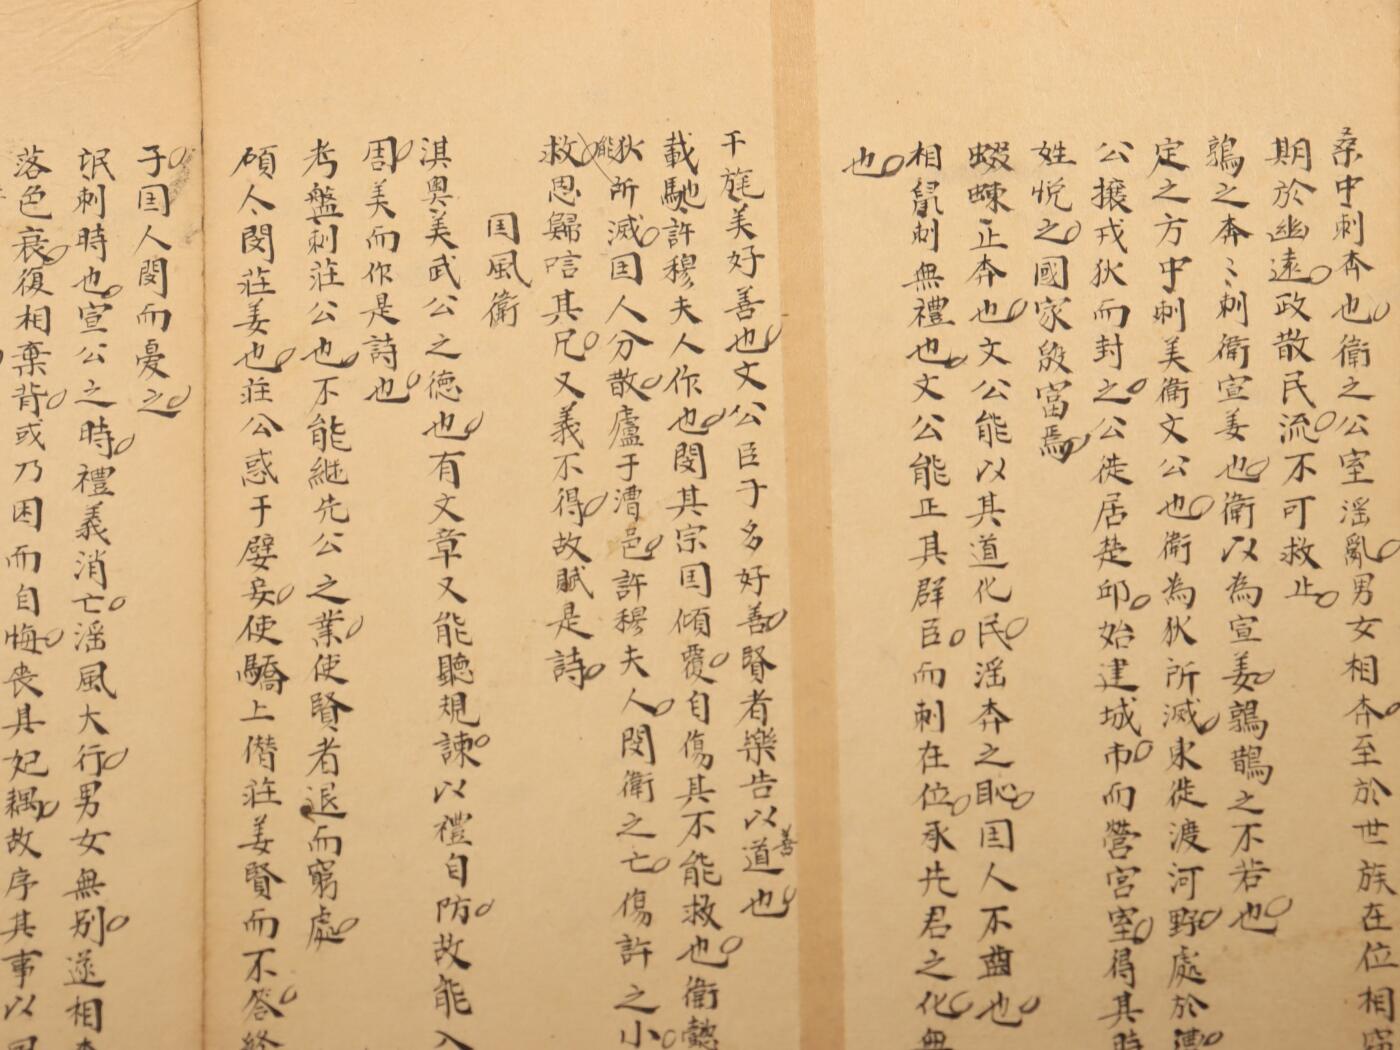 桑中刺奔也衛之公室滛亂男女相奔至於世族在位相竊
期於幽遠政散民流不可救止
鶉之奔〻刺衛宣姜也衛以為宣姜鶉鵲之不若也
定之方中刺美衛文公也衛為狄所滅東徙渡河野處於漕
公攘戎狄而封之公徙居楚邱始建城市而營宮室得其時
姓悅之國家殷富焉
蝃蝀止奔也文公能以其道化民滛奔之恥囯人不齒也
相鼠刺無禮也文公能正其群臣而刺在位承先君之化無
也
干旄美好善也文公臣子多好善賢者樂告以善道也
載馳許穆夫人作也閔其宗囯傾覆自傷其不能救也衛懿
狄所滅囯人分散廬于漕邑許穆夫人閔衛之亡傷許之小
能救思歸唁其兄又義不得故賦是詩
囯風衛
淇奧美武公之德也有文章又能聽規諫以禮自防故能入
周美而作是詩也
考盤刺莊公也不能継先公之業使賢者退而窮處
碩人閔莊姜也莊公惑于嬖妾使驕上僭莊姜賢而不答終
子囯人閔而憂之
氓刺時也宣公之時禮義消亡滛風大行男女無別遂相奔
落色衰復相棄背或乃困而自悔喪其妃耦故序其事以風